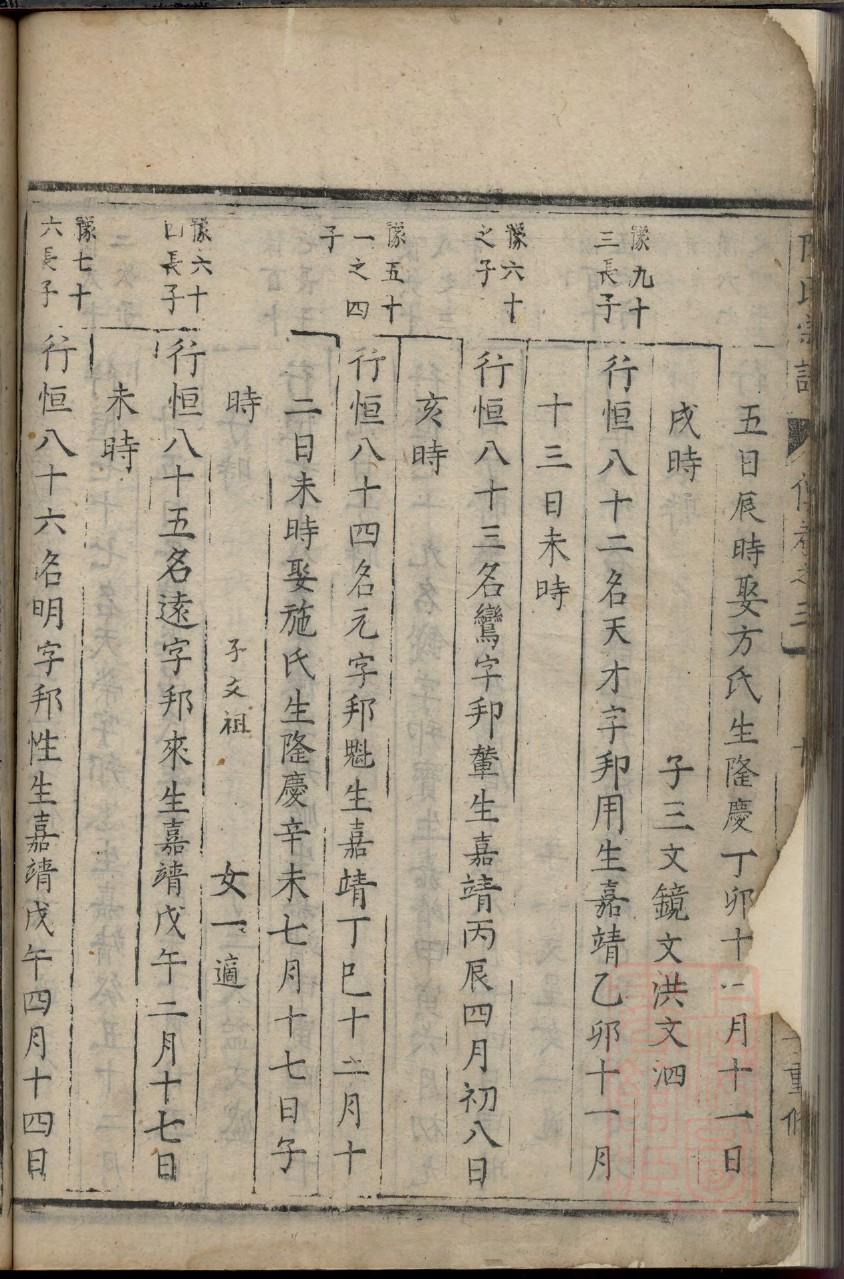 五日辰時娶方氏生隆慶丁卯十 月十一日
戌時 子三文鏡文洪文泗
豫九十
三長子
行恒八十二名天才字邦用生嘉靖乙卯十一月
十三日未時
豫六十
之子
行恒八十三名鸞字邦輦生嘉靖丙辰四月初八日
亥時
豫五十
一之四
子
行恒八十四名元字邦魁生嘉靖丁巳十二月十
二日未時娶施氏生隆慶辛未七月十七日子
時 子文祖 女一適
豫六十
四長子
行恒八十五名遠字邦來生嘉靖戊午二月十七日
未時
豫七十
六長子
行恒八十六名明字邦性生嘉靖戊午四月十四日